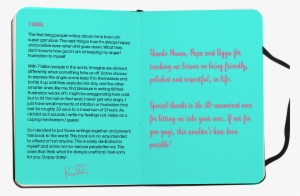 The first thing people notice about me is how I am
super garrulous. The next thing is how I'm always happy
and positive even when and goes down. What they
don't know is how good I am at keeping my anger/
frustration to myself.
With 7 billion people in the world, imagine we all react
differently when something fires up off. Some choose
to express the anger, some keep it to themselves and
bottle it up until they explode one day, and the other
smarter ones, like me, find pleasure in writing all that
frustration warps off. I might be exaggerating here a bit,
but to hit the nail on the head, I never get very angry. I
just have small moments of irritation or frustration that
last for roughly 20 seconds to a maximum of 2 hours. As
clichéd as it sounds, I write my feelings out. Helps as a
coping mechanism, I guess.
So I decided to put those writings together and present
this book to the world. This book is in no way intended
to offend or harm anyone. This is solely dedicated to
myself and some not-so-serious people like me. The
ones that think what I'm doing is unethical, I feel sorry
for you. Enjoy!
Thanks Mumm, Papa and
for
teaching me lessons on being friendly,
polished and respectful, in life.
Special thanks to the ill-mannered ones
for letting me take over you. If not for
you guys, this wouldn't have been
possible!